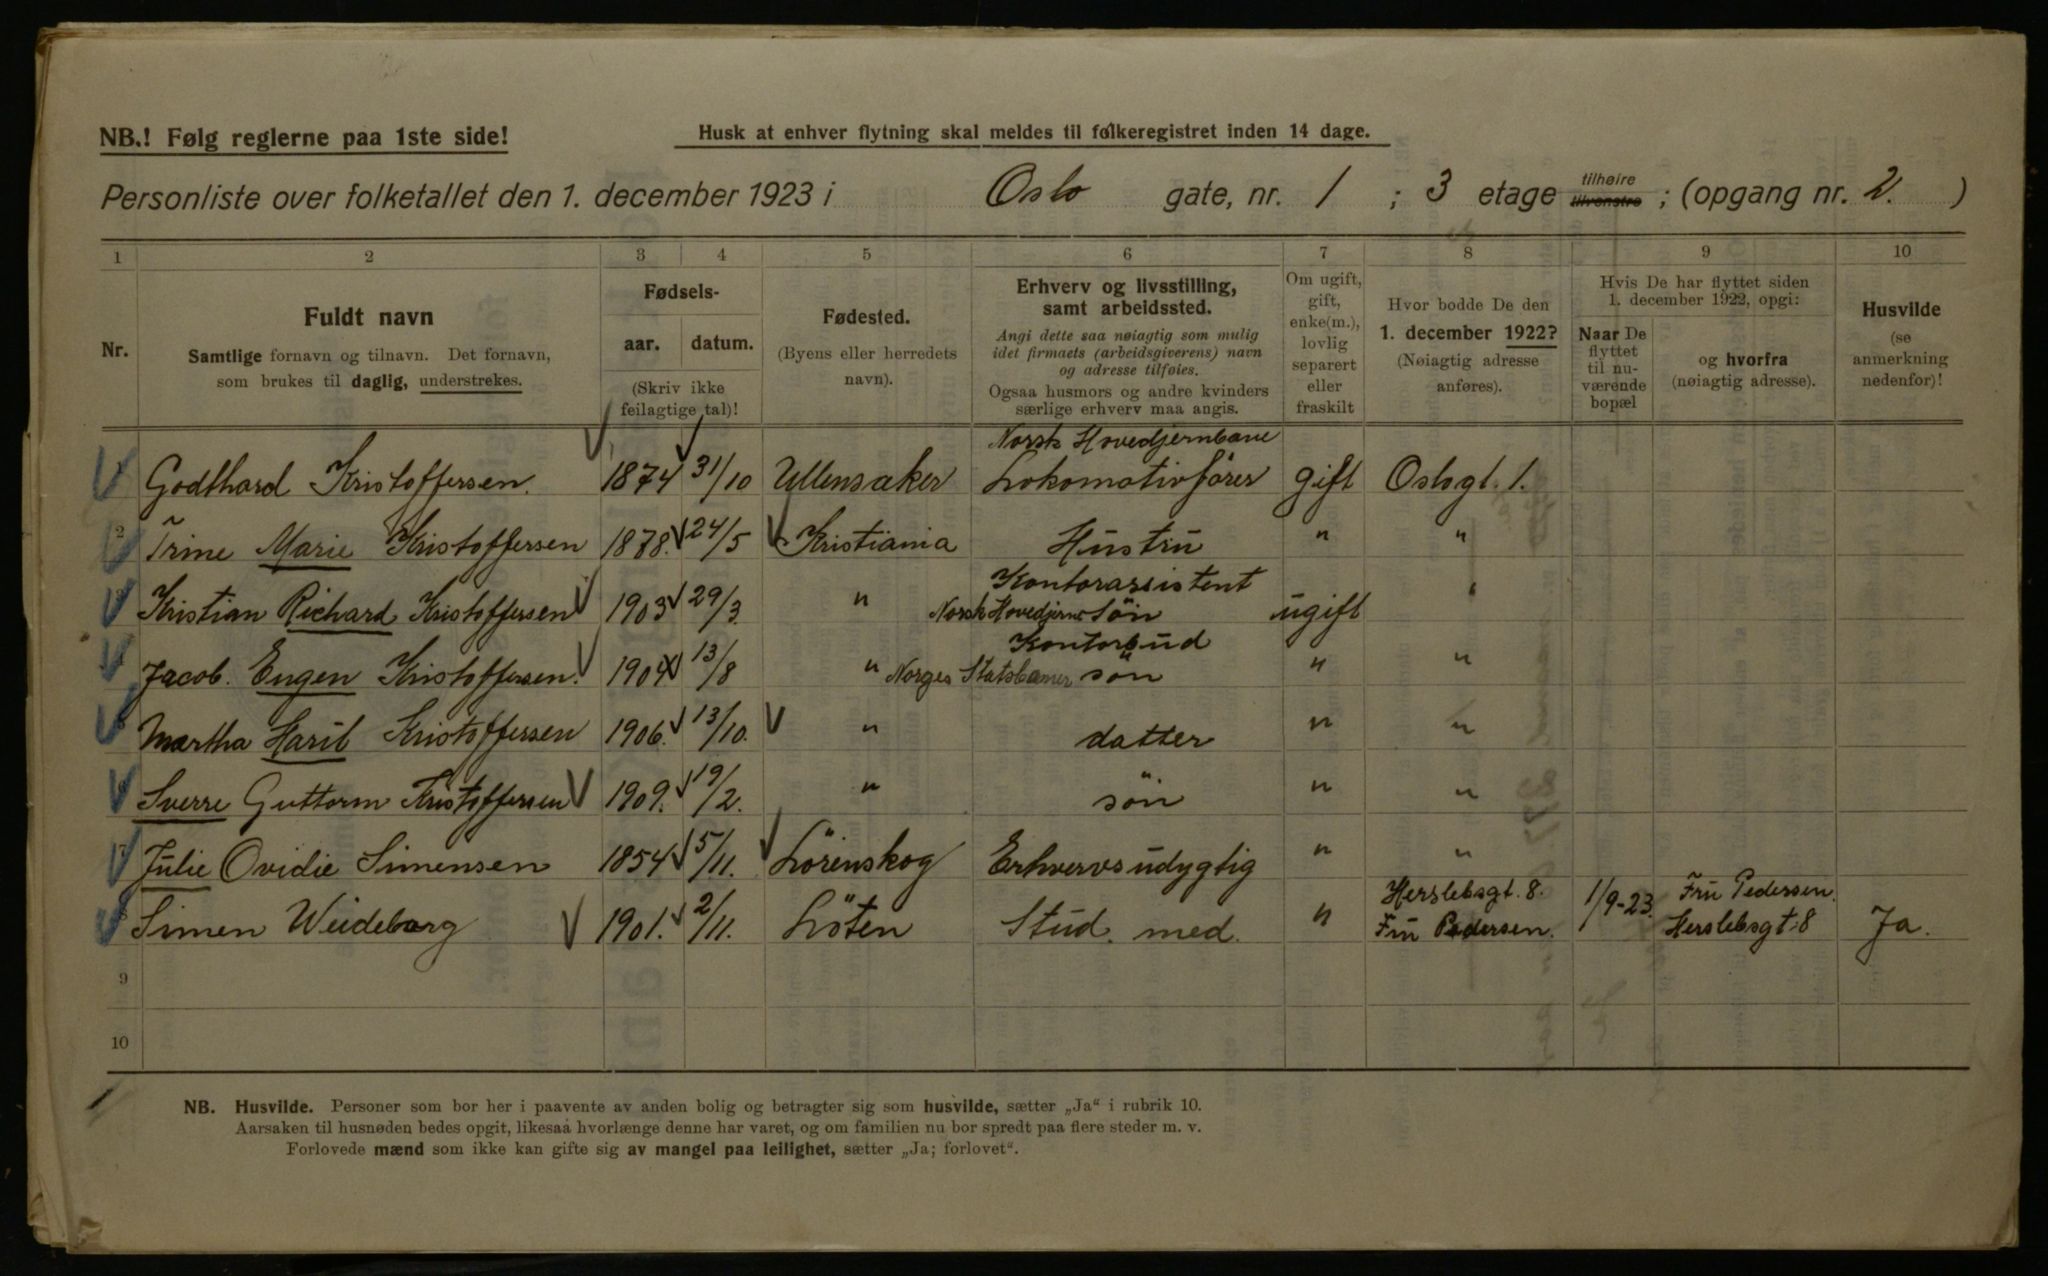 NB.! Følg reglerne paa 1ste side!
Husk at enhver flytning skal meldes til folkeregistret inden 14 dage.
Personliste over folketallet den 1. december 1923 i Oslo gate, nr. 1 ; 3 etage tilhøire tilvenstre ; (opgang nr. 2. )
1 2 3 4 5 6 7 8 9 10
Nr.
Fuldt navn
Samtlige fornavn og tilnavn. Det fornavn,
som brukes til daglig, understrekes.
Fødsels-
aar. datum.
(Skriv ikke
feilagtige tal)!
Fødested.
(Byens eller herredets
navn).
Erhverv og livsstilling,
samt arbeidssted.
Angi dette saa nøiagtig som mulig
idet firmaets (arbeidsgiverens) navn
og adresse tilføies.
Ogsaa husmors og andre kvinders
særlige erhverv maa angis.
Om ugift,
gift,
enke(m.),
lovlig
separert
eller
fraskilt
Hvor bodde De den
1. december 1922?
(Nøiagtig adresse
anføres).
Hvis De har flyttet siden
1. december 1922, opgi:
Naar De
flyttet
til nu-
værende
bopæl
og hvorfra
(nøiagtig adresse).
Husvilde
(se
anmerkning
nedenfor)!
Norsk Hovedjernbane
1 Godthard Kristoffersen. 1874 31/10 Ullensaker Lokomotivförer gift Oslogt. 1.
2 Trine Marie Kristoffersen 1878. 24/5 Kristiania Hustru " "
Kontorassistent
3 Kristian Richard Kristoffersen 1903 29/3 " Norsk Hovedjern sön ugift "
Kontorbud
4 Jacob. Eugen Kristoffersen. 1904 13/8 " Norges Statsbaner sön " "
5 Martha Harib Kristoffersen 1906. 13/10. " datter " "
6 Sverre Guttorm Kristoffersen 1909. 19/2. " sön " "
7 Julie Ovidie Simensen 1854 5/11. Lörenskog Erhvervsudygtig " "
Herslebsgt. 8. 1/9-23. Fru Pedersen.
8 Simen Weideborg 1901. 2/11. Löten Stud. med. " Fru Pedersen. Herslebsgt. 8 Ja.
9
10
NB. Husvilde. Personer som bor her i paavente av anden bolig og betragter sig som husvilde, sætter „Ja“ i rubrik 10.
Aarsaken til husnøden bedes opgit, likesaa hvorlænge denne har varet, og om familien nu bor spredt paa flere steder m. v.
Forlovede mænd som ikke kan gifte sig av mangel paa leilighet, sætter „Ja; forlovet“.